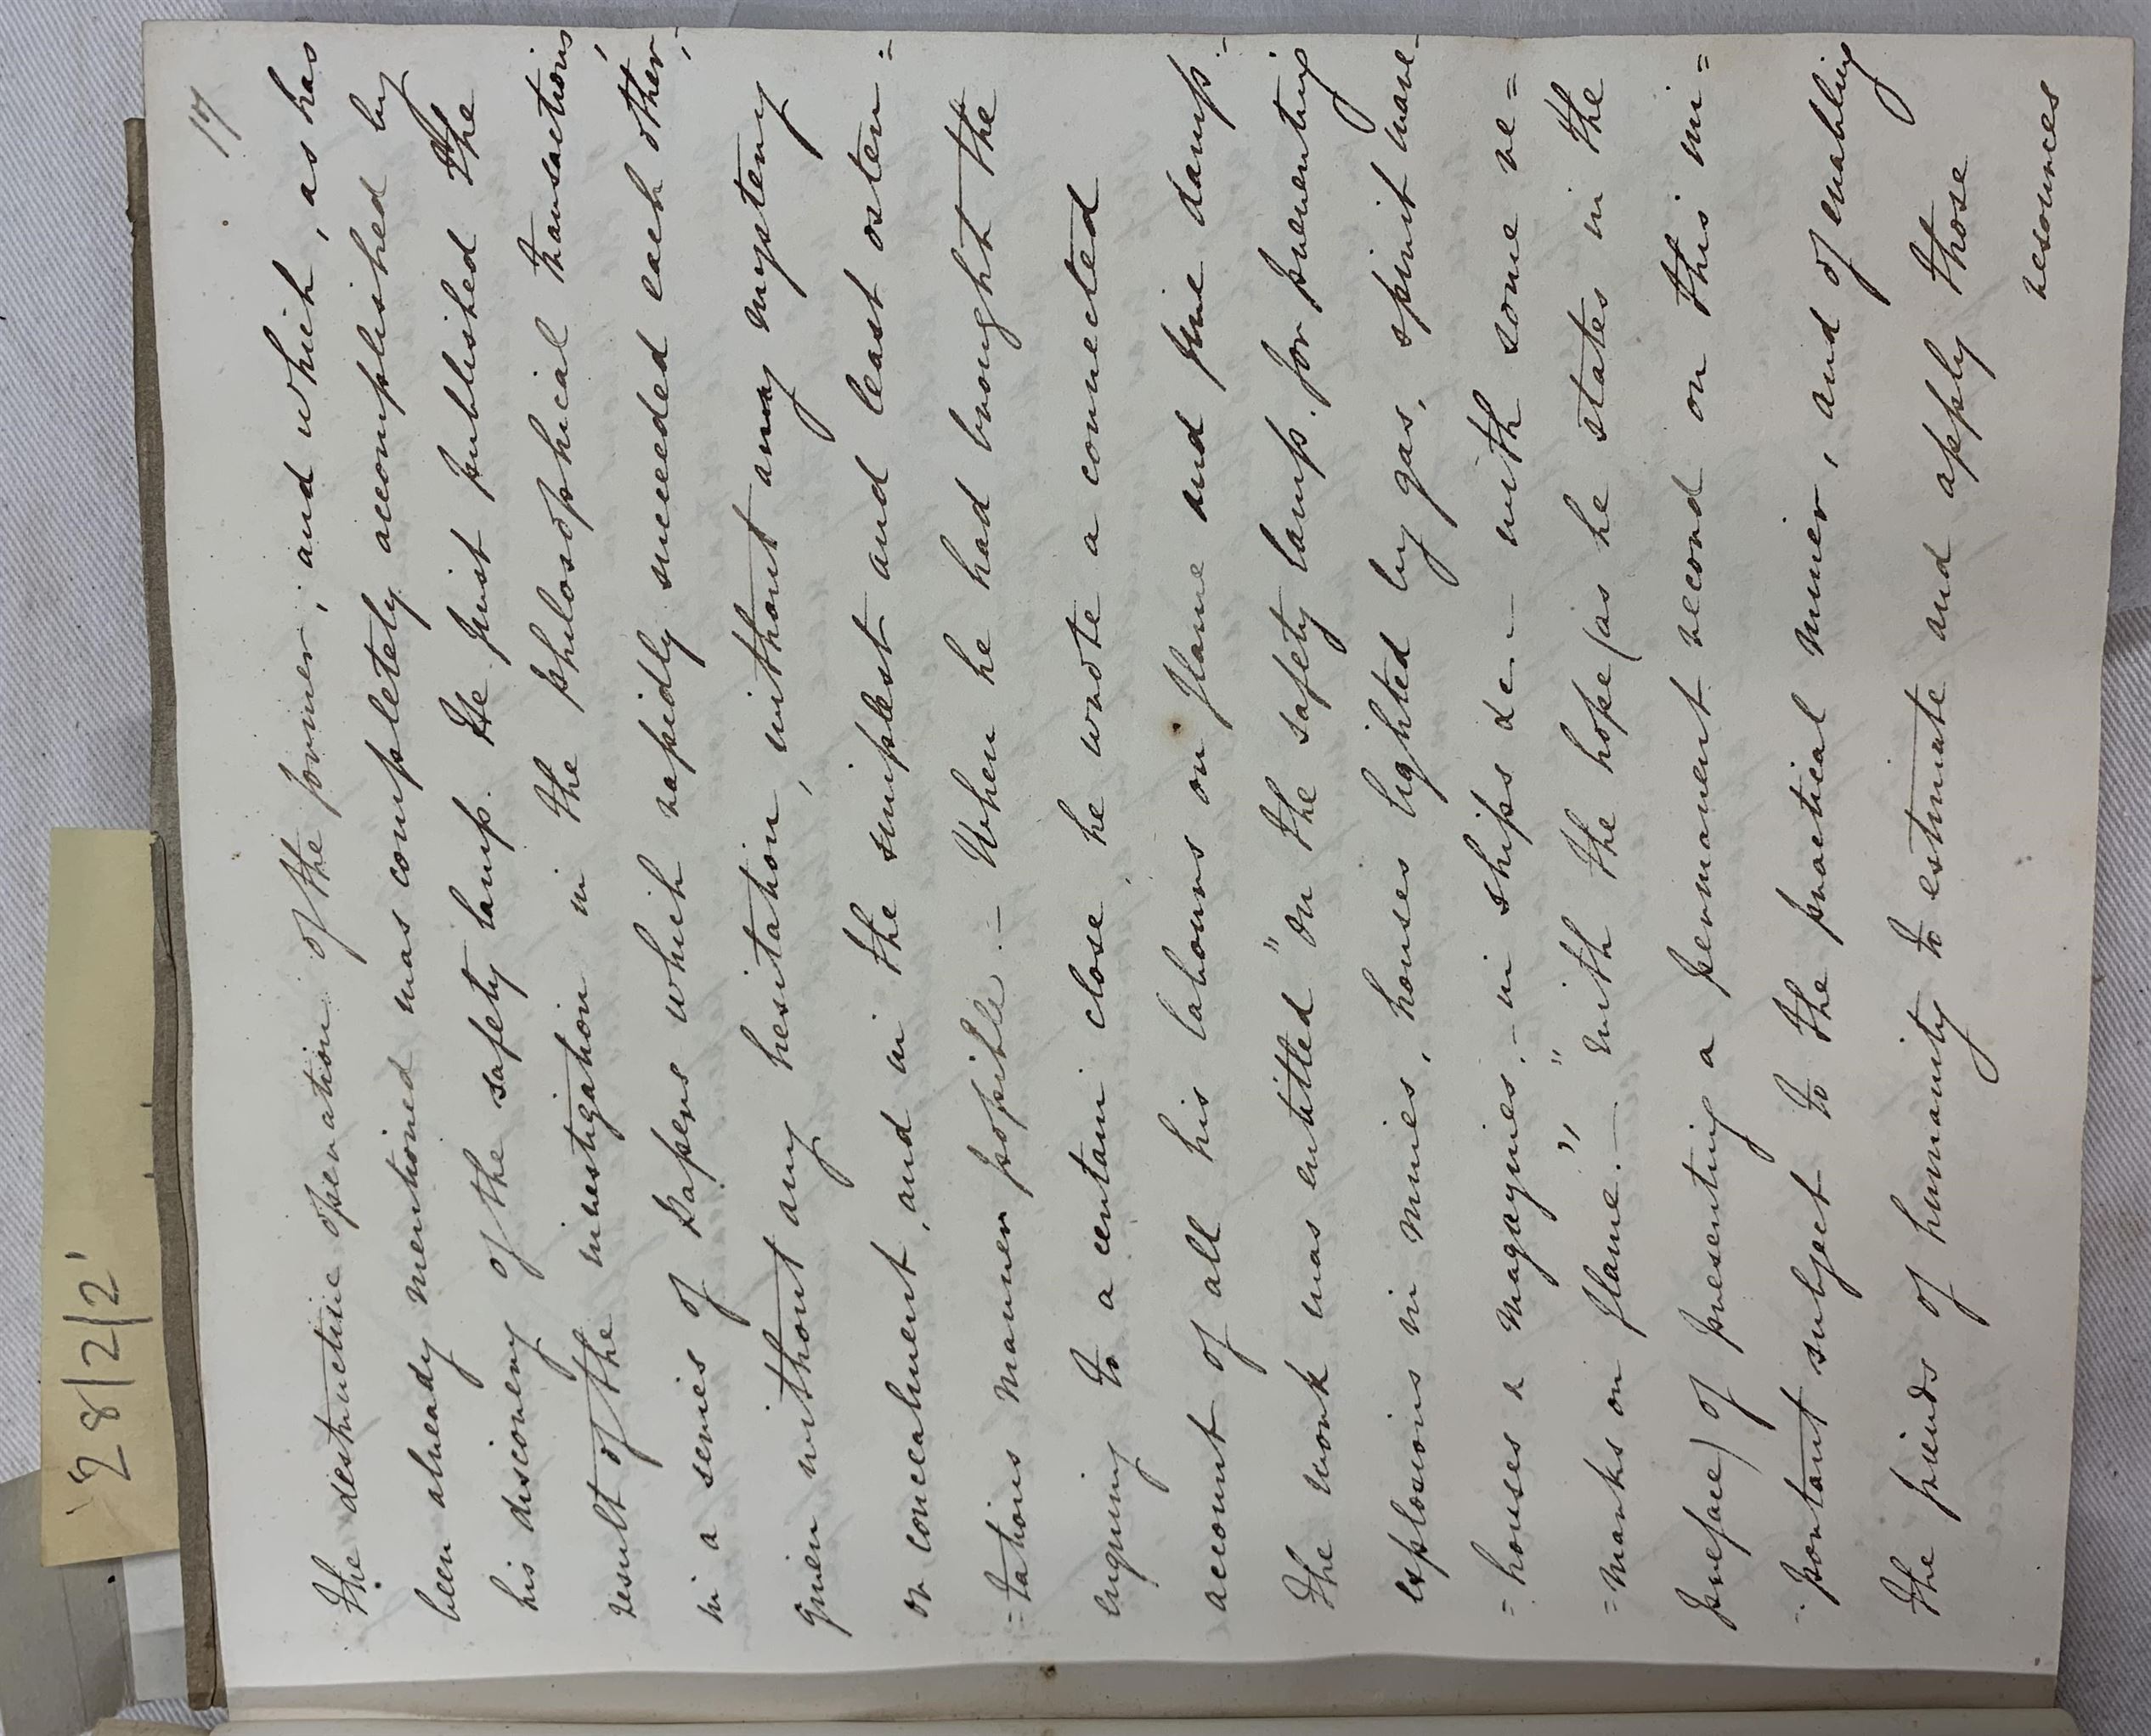 28/2/2'
17
the destructive operation of the former; and which, as has
been already mentioned was completely accomplished by
his discovery of the safety lamp. He first published the
result of the investigation in the philosophical transactions,
in a series of papers which rapidly succeeded each other;-
given without any hesitation, without any mystery
or concealment, and in the simplest and least osten=
=tatious manner possible.- When he had brought the
enquiry to a certain close, he wrote a connected
account of all his labours on flame and fire damp:-
the work was entitled "on the safety lamp. for preventing
explosions in mines, houses lighted by gas, spirit ware-
=houses & magazines:- in ships &c.- with some re=
=marks on flame.- " " with the hope (as he states in the
preface) of presenting a permanent record on this im=
=portant subject to the practical miner, and of enabling
the friends of humanity to estimate and apply those
resources